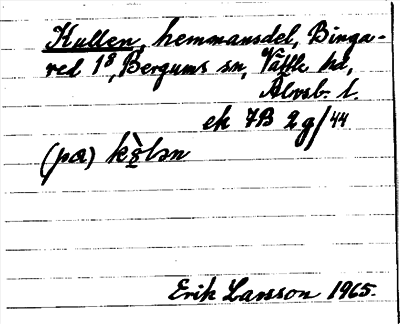 Kullen, hemmansdel, Binga-
red 1⁸, Bergums sn, Vättle hd,
Älvsb. l.
ek 7B 2g/44
(pa) kö̀lən
Erik Larsson 1965.